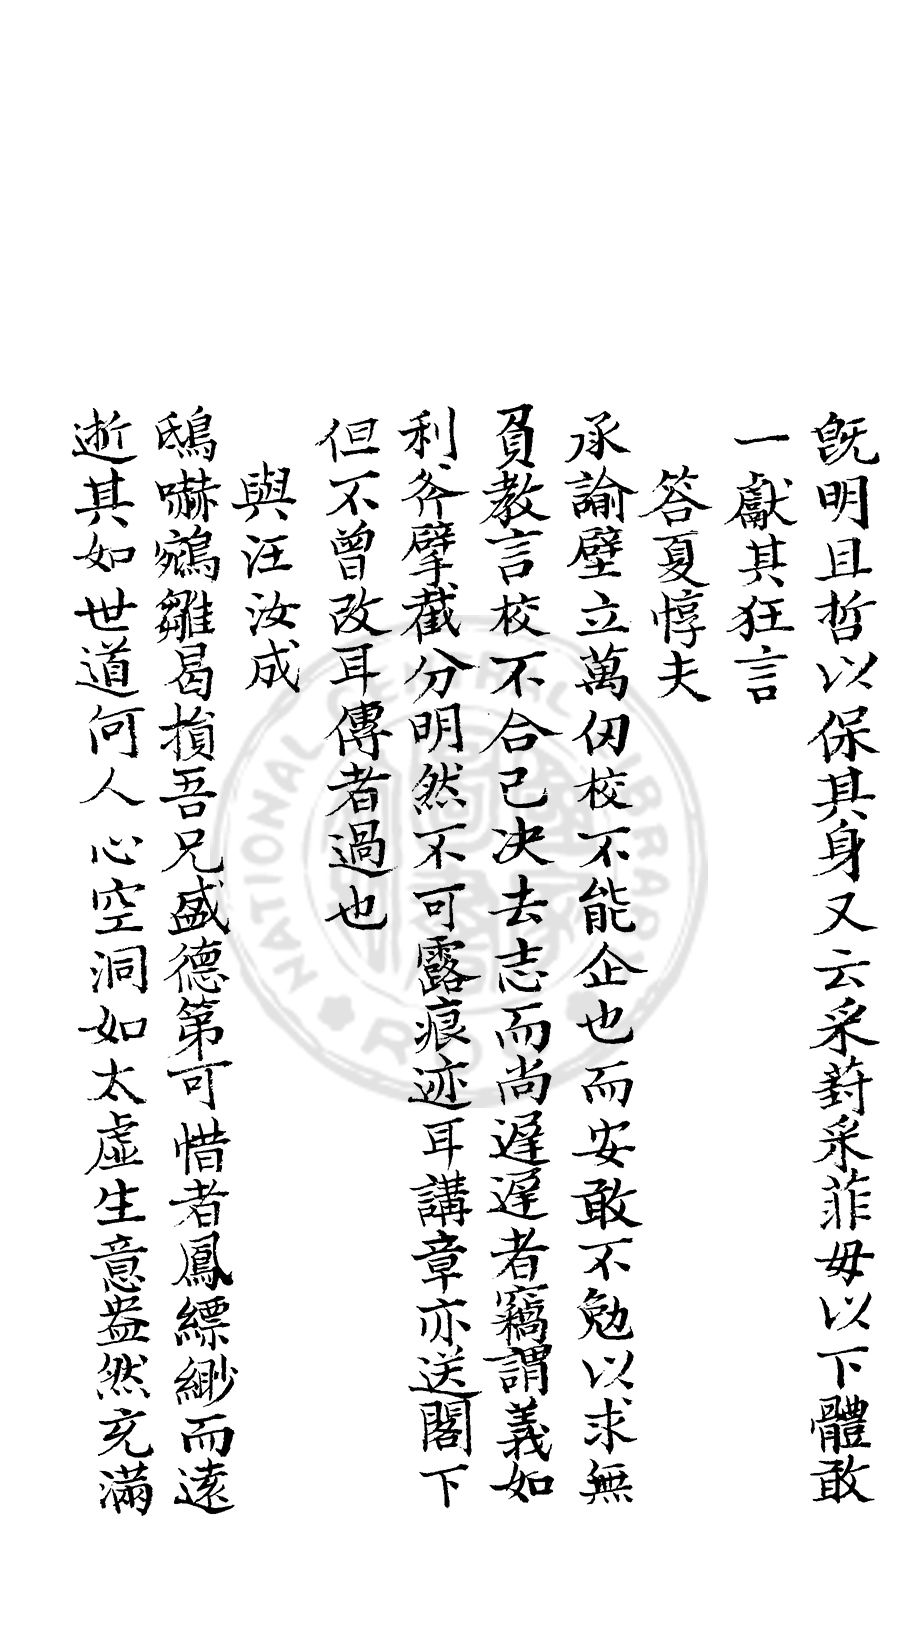 既明且哲以保其身又云采葑采菲毋以下體敢
一獻其狂言
答夏惇夫
承諭壁立萬仞校不能企也而安敢不勉以求無
負教言校不合已决去志而尚遲遲者竊謂義如
利斧擘截分明然不可露痕迹耳講章亦送閣下
但不曾改耳傳者過也
與汪汝成
鴟嚇鵷雛曷損吾兄盛德第可惜者鳳縹緲而遠
逝其如世道何人心空洞如太虛生意盎然充滿
NATIONAL CENTRAL LIBRARY
R.O.C.